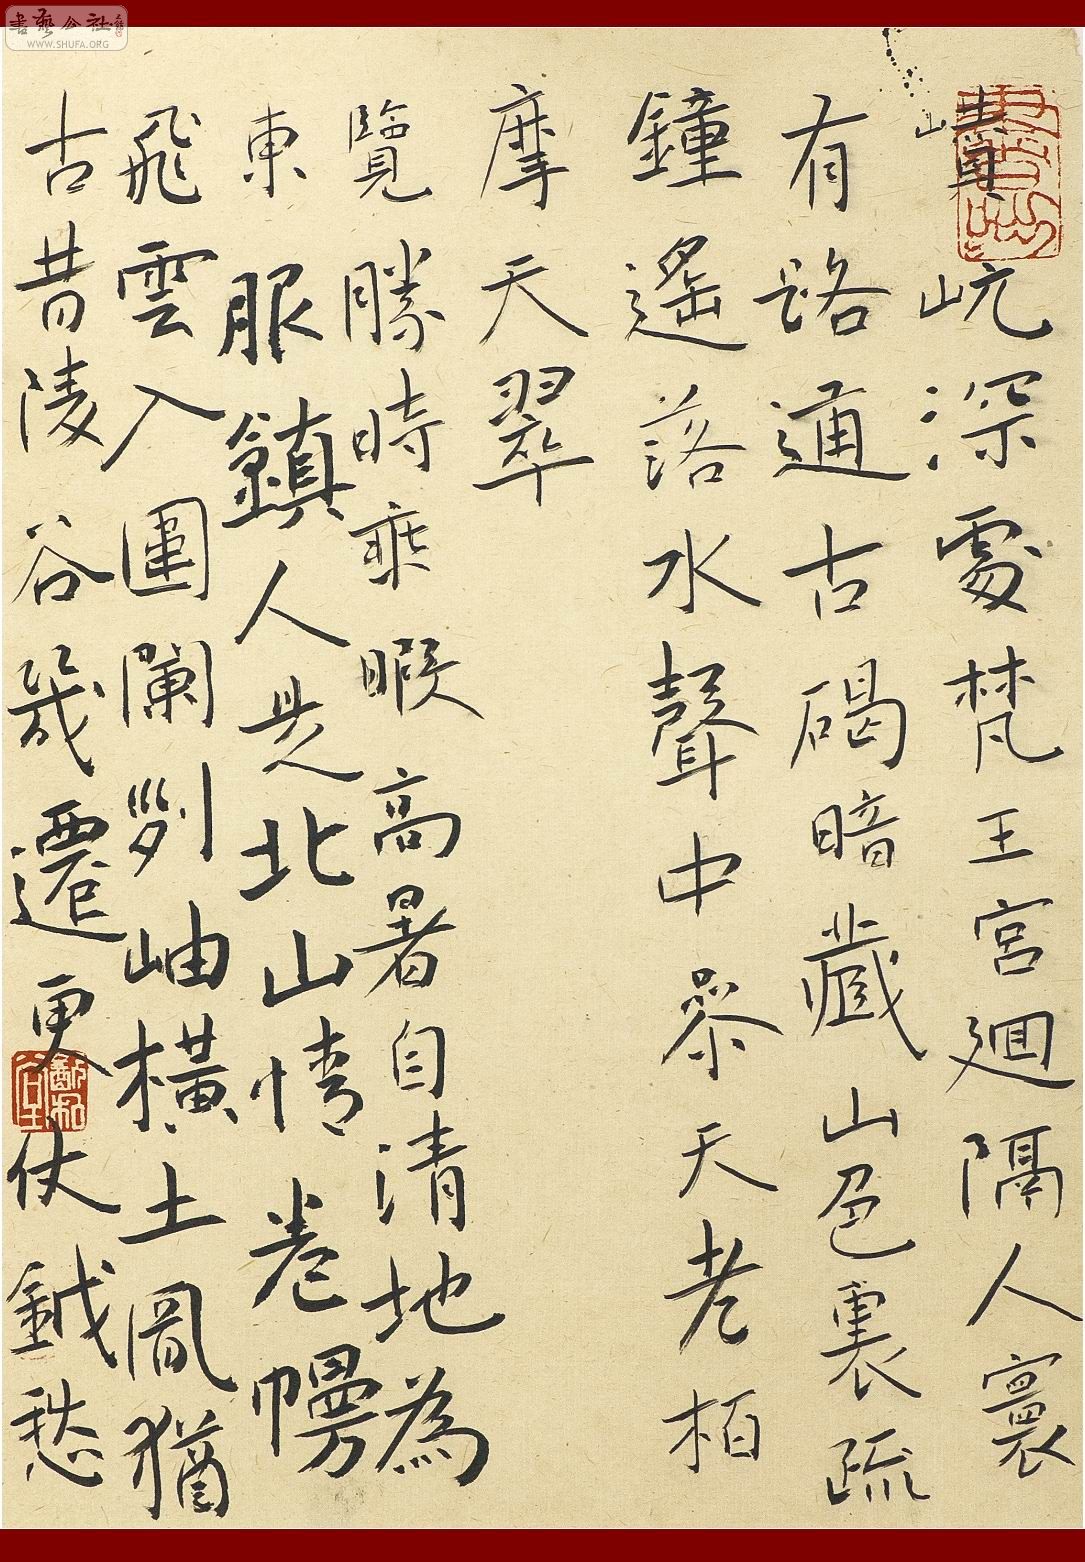 嵴岏深處梵王宮迴隔人寰
有路通古碣暗藏山色裏疏
鐘遙落水聲中參天老柏
摩天翠
覽勝時乘暇高暑自清地為
東服鎮人是北山情卷幔
飛雲入圍闌列岫橫土風猶
古昔陵谷幾遷更仗鉞愁
書藝公社
WWW.SHUFA.ORG